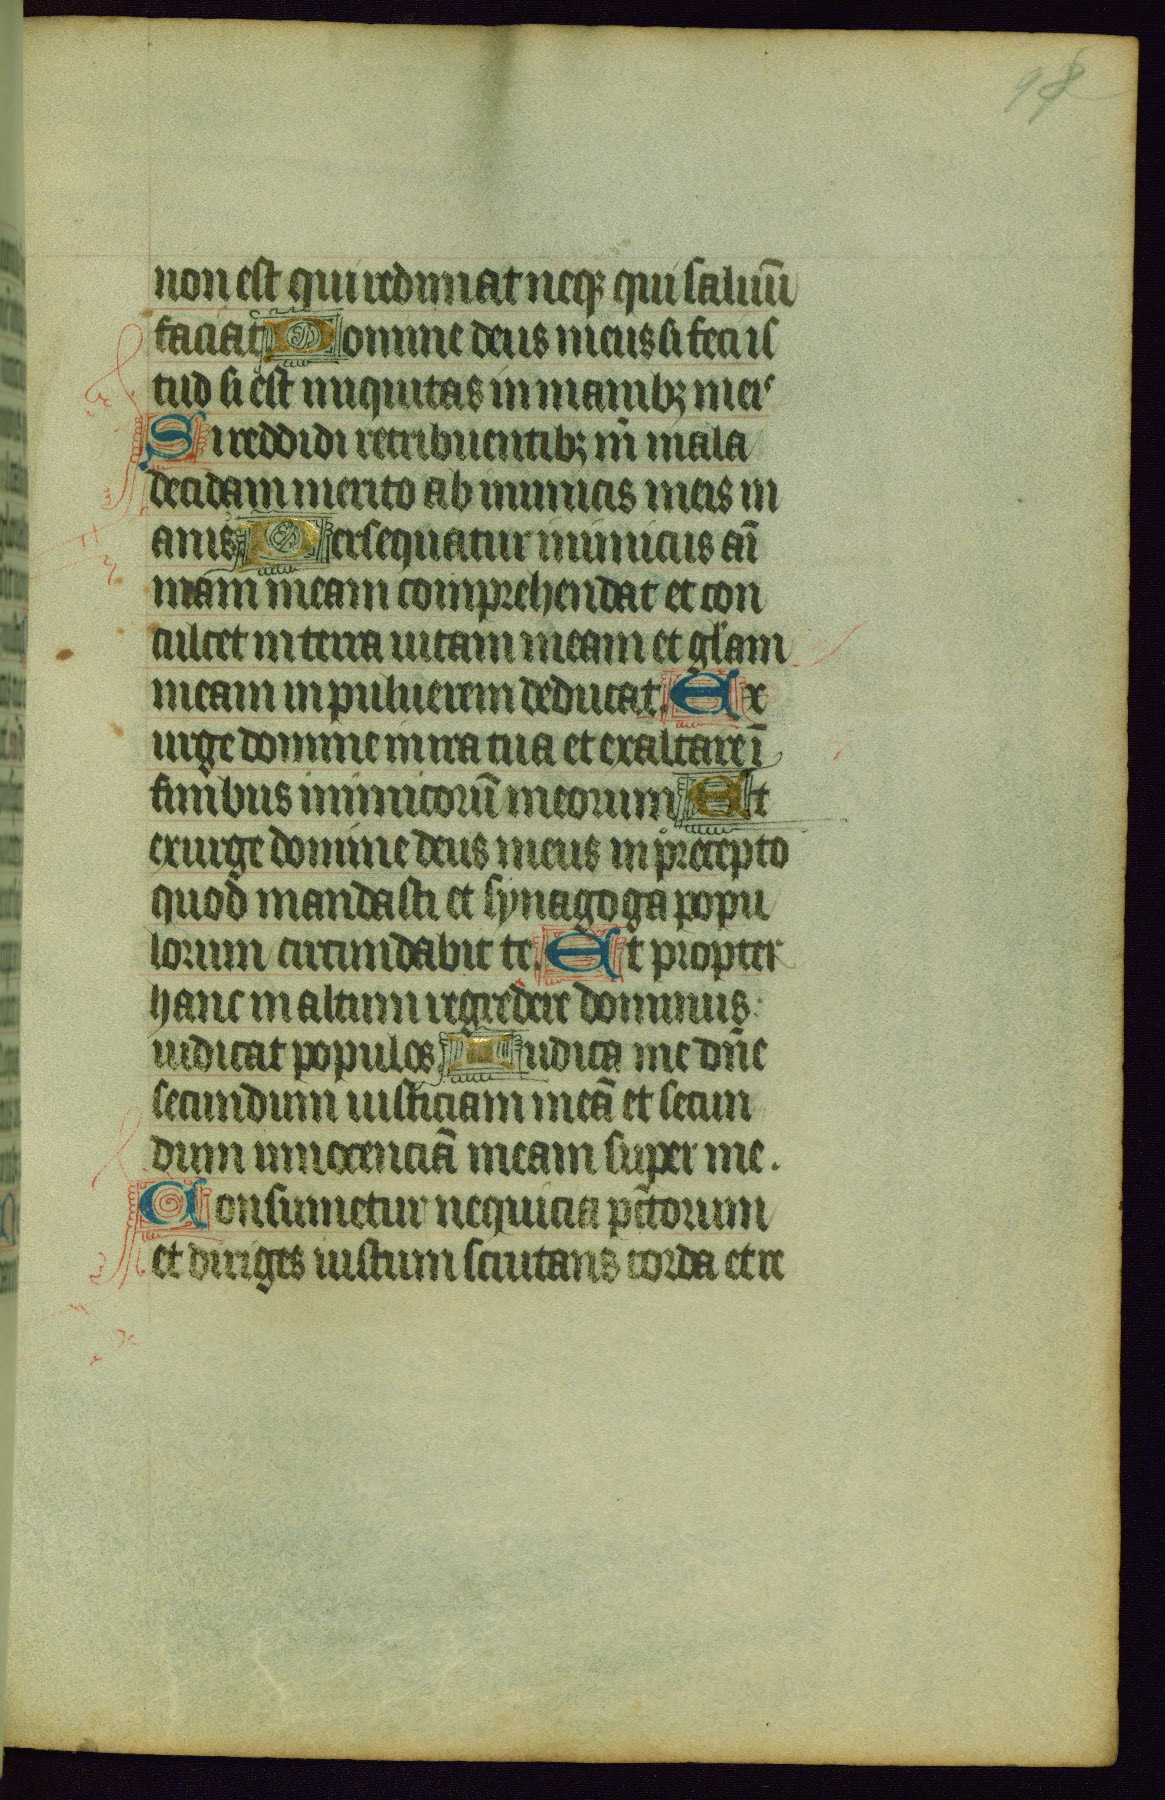 98
non est qui redimat neq; qui saluū
faciat Domine deus meus si feci is
tud si est iniquitas in manib; meis
Si reddidi retribuentib; m̄ mala
decidam merito ab inimicis meis in
anis Persequatur inimicus aī
mam meam comprehendat et con
culcet in terra uitam meam et gl'am
meam in puluerem deducat. Ex
urge domine in ira tua et exaltare ī
finibus inimicorū meorum Et
exurge domine deus meus in precepto
quod mandasti et synagoga popu
lorum circundabit te. Et propter
hanc in altum regredere dominus
iudicat populos. Iudica me dn̄e
secundum iusticiam meā et secun
dum innocenciā meam super me.
Consumetur nequicia pc̄torum
et diriges iustum scrutans corda et re